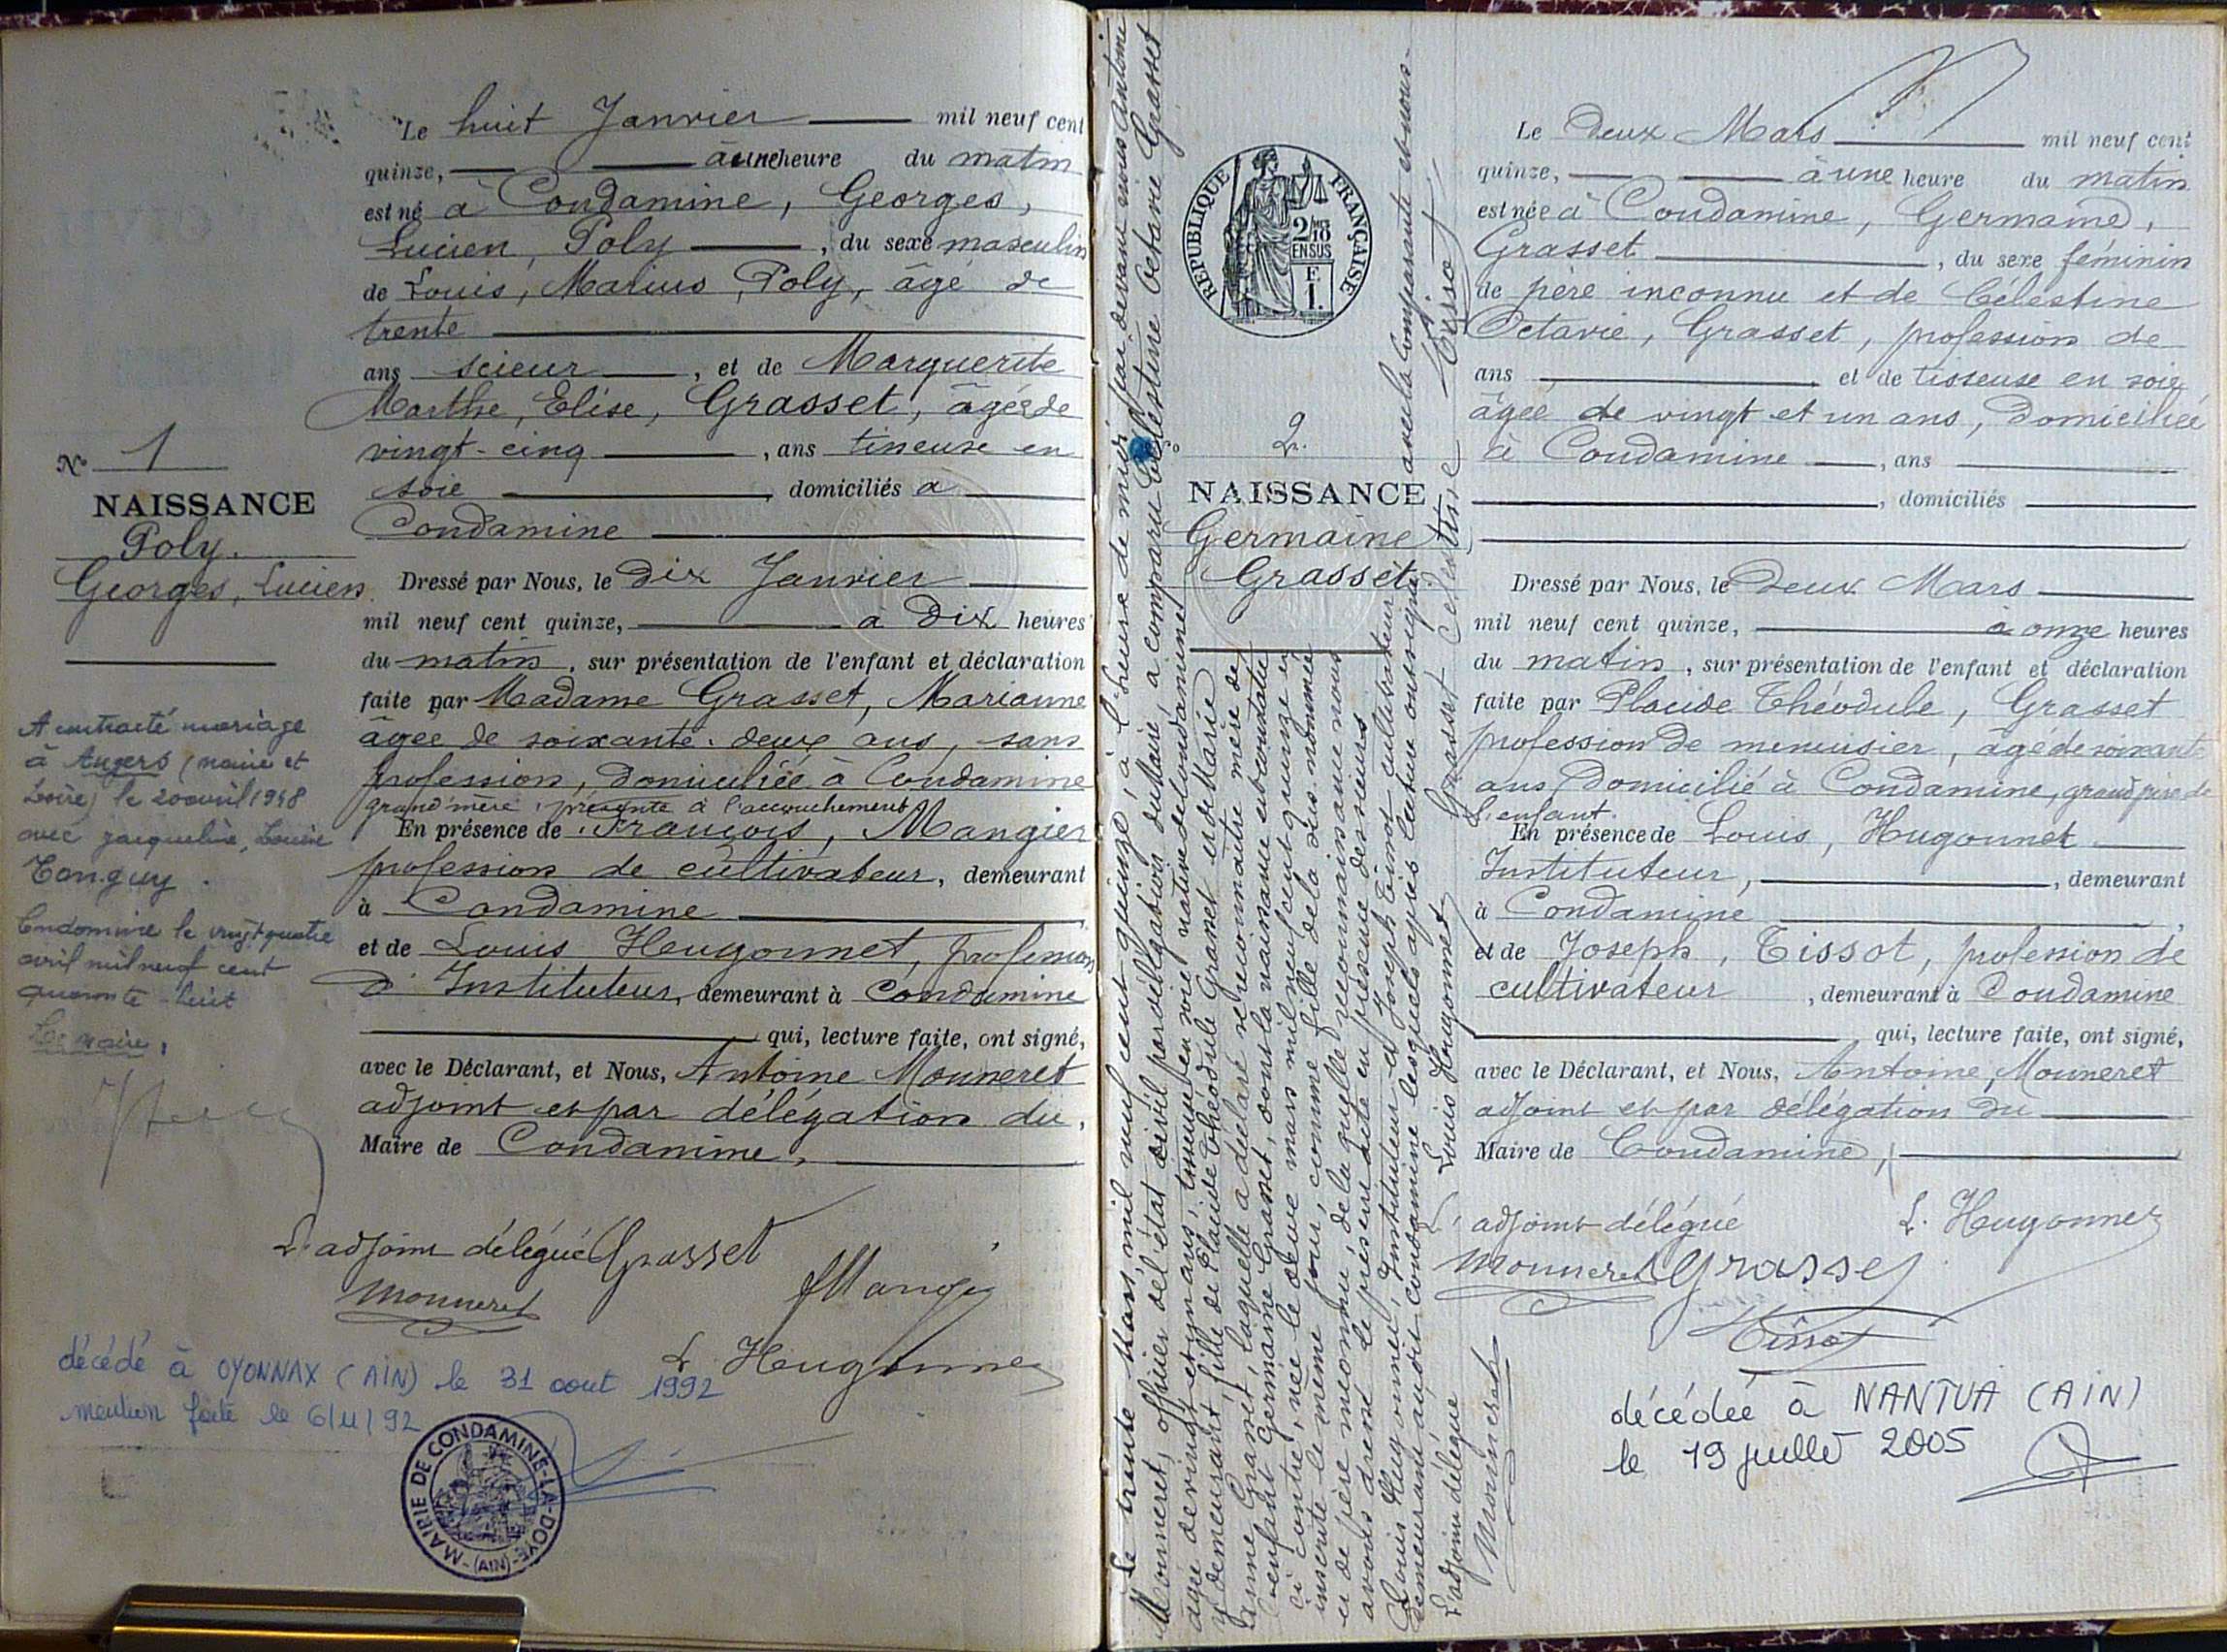 Le huit Janvier mil neuf cent
quinze, à une heure du matin
est né à Condamine, Georges,
Lucien, Poly, du sexe masculin
de Louis, Marius, Poly, âgé de
trente
ans scieur, et de Marguerite
Marthe, Elise, Grasset, âgée de
vingt-cinq, ans tisseuse en
soie, domiciliés à
Condamine
Dressé par Nous, le Dix Janvier
mil neuf cent quinze, à Dix heures
du matin, sur présentation de l'enfant et déclaration
faite par Madame Grasset, Marianne
âgée de soixante-deux ans, sans
profession, domiciliée à Condamine
grand'mère, présente à l'accouchement
En présence de François, Mangier
profession de cultivateur, demeurant
à Condamine
et de Louis Hugonnet, profession
d'Instituteur, demeurant à Condamine
qui, lecture faite, ont signé,
avec le Déclarant, et Nous, Antoine Monneret
adjoint et par délégation du,
Maire de Condamine,
L'adjoint délégué Grasset
Monneret
L. Hugonnet
N° 1
NAISSANCE
Poly.
Georges, Lucien
A contracté mariage
à Angers (maine et
Loire) le 20 avril 1948
avec Jacqueline, Louise
Tanguy.
Condamine le vingt quatre
avril mil neuf cent
quarante-huit
Le maire,
décédé à OYONNAX (AIN) le 31 aout 1992
mention faite le 6/11/92
MAIRIE DE CONDAMINE-LA-DOYE
(AIN)
Le trente Mars, mil neuf cent quinze, à l'heure de midi par devant nous Antoine
Monneret, officier de l'état civil par délégation du Maire, a comparu Célestine Octavie Grasset
âgée de vingt et un ans, tisseuse en soie native de Condamine
y demeurant, fille de Placide Théodule Grasset et de Marie
Anne Grasset, laquelle a déclaré se reconnaître mère de
l'enfant Germaine Grasset, dont la naissance est constatée
ci contre, née le deux mars mil neuf cent quinze et
inscrite le même jour, comme fille de la sus-nommée
et de père inconnu, de laquelle reconnaissance nous
avons dressé le présent acte en présence des sieurs
Louis Hugonnet, Instituteur et Joseph Tissot cultivateur
demeurant audit Condamine lesquels après lecture ont signé avec la comparante et nous.
L'adjoint délégué Louis Hugonnet Grasset Célestine Tissot
Monneret
REPUBLIQUE FRANÇAISE
2/10 EN SUS
F.
1.
2.
NAISSANCE
Germaine
Grasset
Le Deux Mars mil neuf cent
quinze, à une heure du matin
est née à Condamine, Germaine,
Grasset, du sexe féminin
de père inconnu et de Célestine
Octavie, Grasset, profession de
ans et de tisseuse en soie
âgée de vingt et un ans, domiciliée
à Condamine, ans
, domiciliés
Dressé par Nous, le Deux Mars
mil neuf cent quinze, à onze heures
du matin, sur présentation de l'enfant et déclaration
faite par Placide Théodule, Grasset
profession de menuisier, âgé de soixante
ans Domicilié à Condamine, grand père de
l'enfant.
En présence de Louis, Hugonnet
Instituteur, demeurant
à Condamine
et de Joseph, Tissot, profession de
cultivateur, demeurant à Condamine
qui, lecture faite, ont signé,
avec le Déclarant, et Nous, Antoine, Monneret
adjoint et par délégation du
Maire de Condamine,
L'adjoint délégué L. Hugonnet
Monneret Grasset
Tissot
décédée à NANTUA (AIN)
le 19 juillet 2005